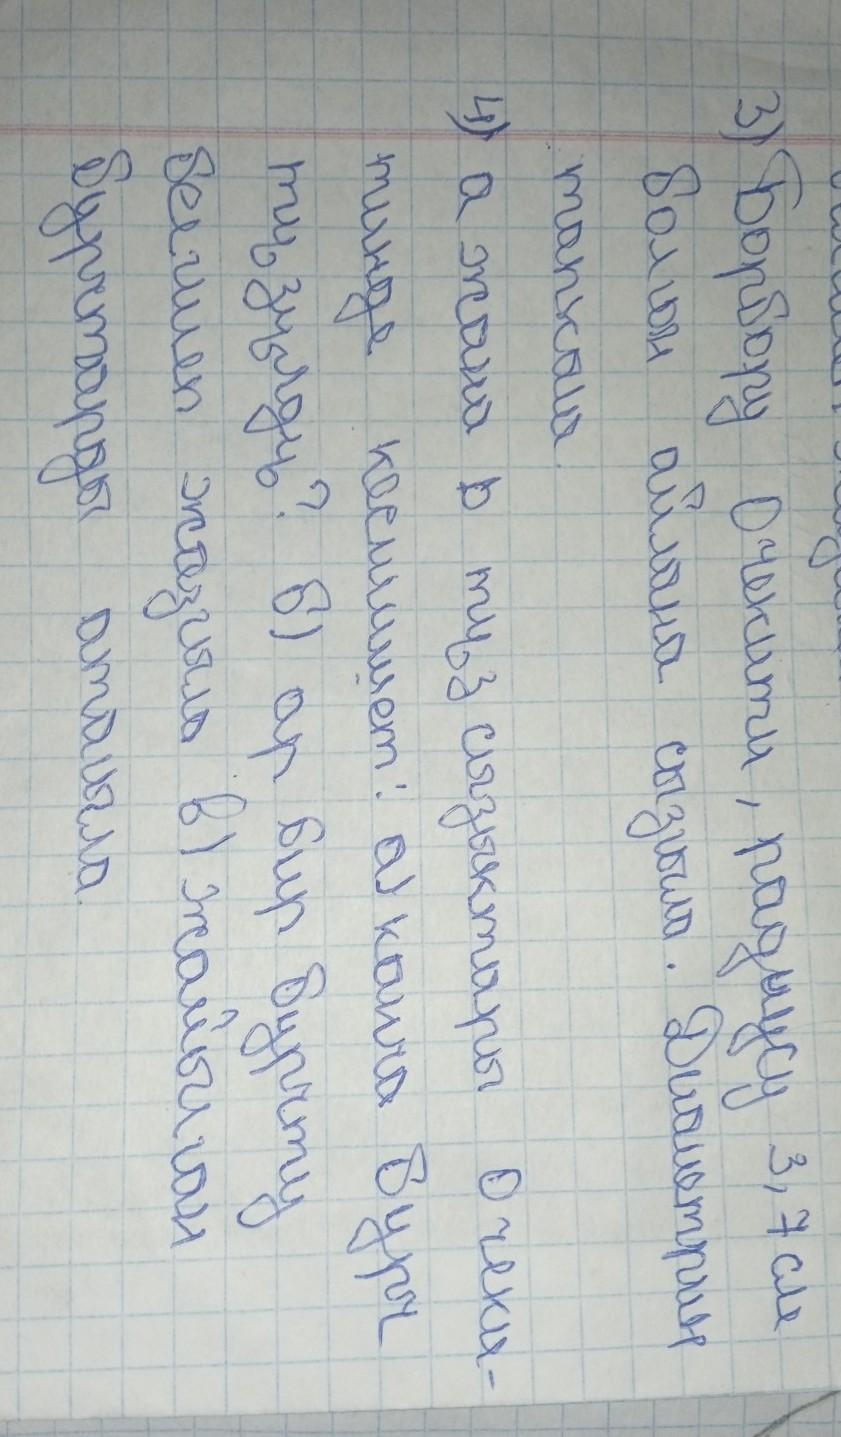 3) Борбору О чекити, радиусу 3,7 см
болгон айлана сызгыла. Диаметрин
тапкыла.
4) а жана b түз сызыктары О чеки-
тинде кесилишет: а) канча бурч
түзүлдү? б) ар бир бурчту
белгилеп жазгыла в) жайылган
бурчтарды атагыла.